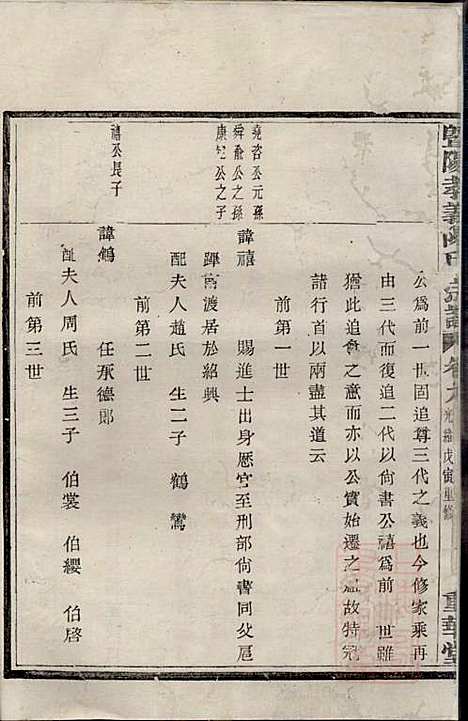 暨陽孝義陳氏宗譜 卷九 光緒戊寅重修 重華堂
公爲前一世固追尊三代之義也今修家乘再
由三代而復追二代以尚書公禧爲前一世雖
猶此追會之意而亦以公實始遷之祖故特冠
諸行首以兩盡其道云
前第一世
堯咨公元孫
舜俞公之孫
康 公之子
諱禧 賜進士出身歷官至刑部尚書同父扈
蹕南渡居於紹興
配夫人趙氏 生二子 鶴 鸞
前第二世
禧公長子
諱鶴 任承德郎
配夫人周氏 生三子 伯裳 伯纓 伯啓
前第三世